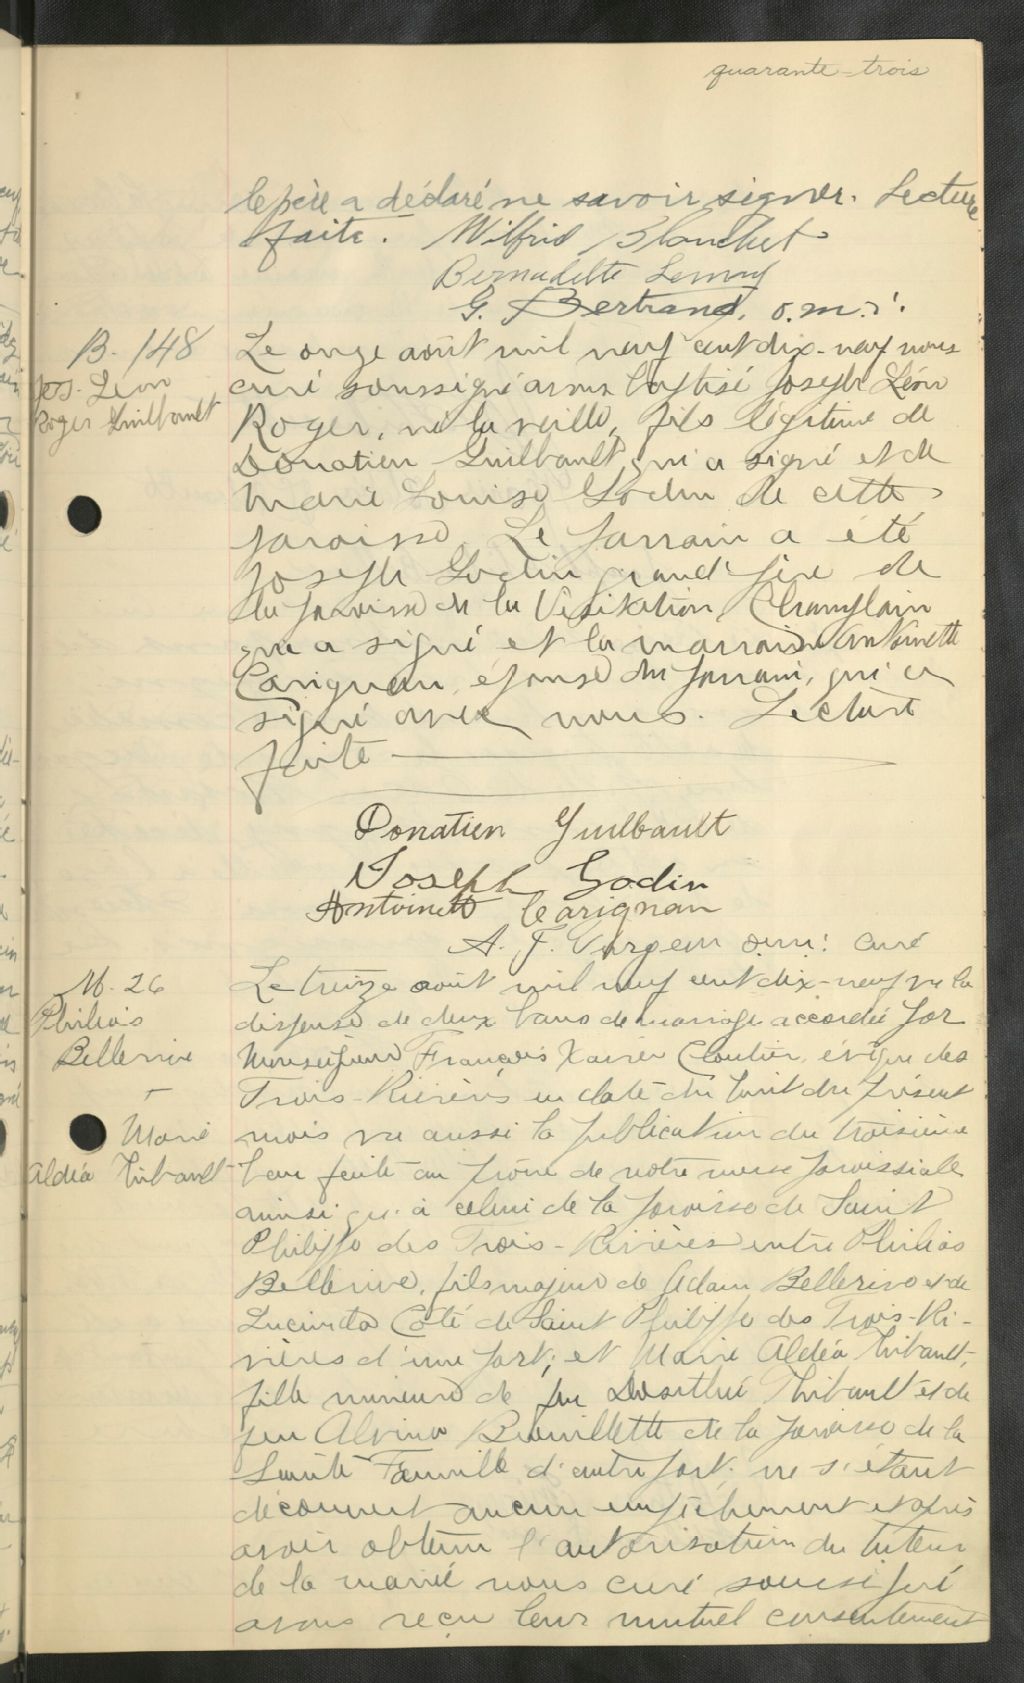 quarante-trois
le père a déclaré ne savoir signer. Lecture
faite. Wilfrid Blanchet
Bernadette Lemay
G. Bertrand, o.m.i.
B. 148
Jos. Léon
Roger Guilbault
Le onze août mil neuf cent dix-neuf nous
curé soussigné avons baptisé Joseph Léon
Roger, né la veille, fils légitime de
Donatien Guilbault, qui a signé et de
Marie Louise Godin de cette
paroisse. Le parrain a été
Joseph Godin grand'père de
la paroisse de la Visitation Champlain
qui a signé et la marraine Antoinette
Carignan, épouse du parrain, qui a
signé avec nous. Lecture
faite
Donatien Guilbault
Joseph Godin
Antoinette Carignan
A. F. o.m.i. curé
M. 26
Philias
Bellerive
Marie
Aldéa Thibault
Le treize août mil neuf cent dix-neuf vu la
dispense de deux bans de mariage accordée par
Monseigneur François Xavier Cloutier, évêque des
Trois-Rivières en date du huit du présent
mois vu aussi la publication du troisième
ban faite au prône de notre messe paroissiale
ainsi qu'à celui de la paroisse de Saint
Philippe des Trois-Rivières entre Philias
Bellerive, fils majeur de Adam Bellerive et de
Lucinda Côté de Saint Philippe des Trois-Ri-
vières d'une part; et Marie Aldéa Thibault,
fille mineure de feu Thibault et de
feu Alvina Brouillette de la paroisse de la
Sainte Famille d'autre part: ne s'étant
découvert aucun empêchement et après
avoir obtenu l'autorisation du tuteur
de la mariée nous curé soussigné
avons reçu leur mutuel consentement